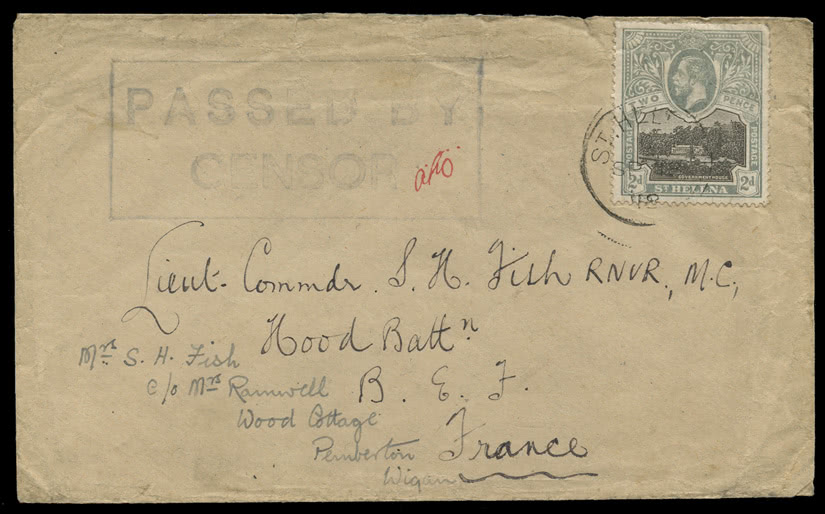 PASSED BY
CENSOR
TWO PENCE
POSTAGE POSTAGE
GOVERNMENT HOUSE
2d ST HELENA 2d
ST. HELE
18
Lieut- Commdr. S. H. Fish RNVR, M.C,
Hood Battn
B. E. F.
France
Mrs S. H. Fish
c/o Mrs Ramwell
Wood Cottage
Pemberton
Wigan